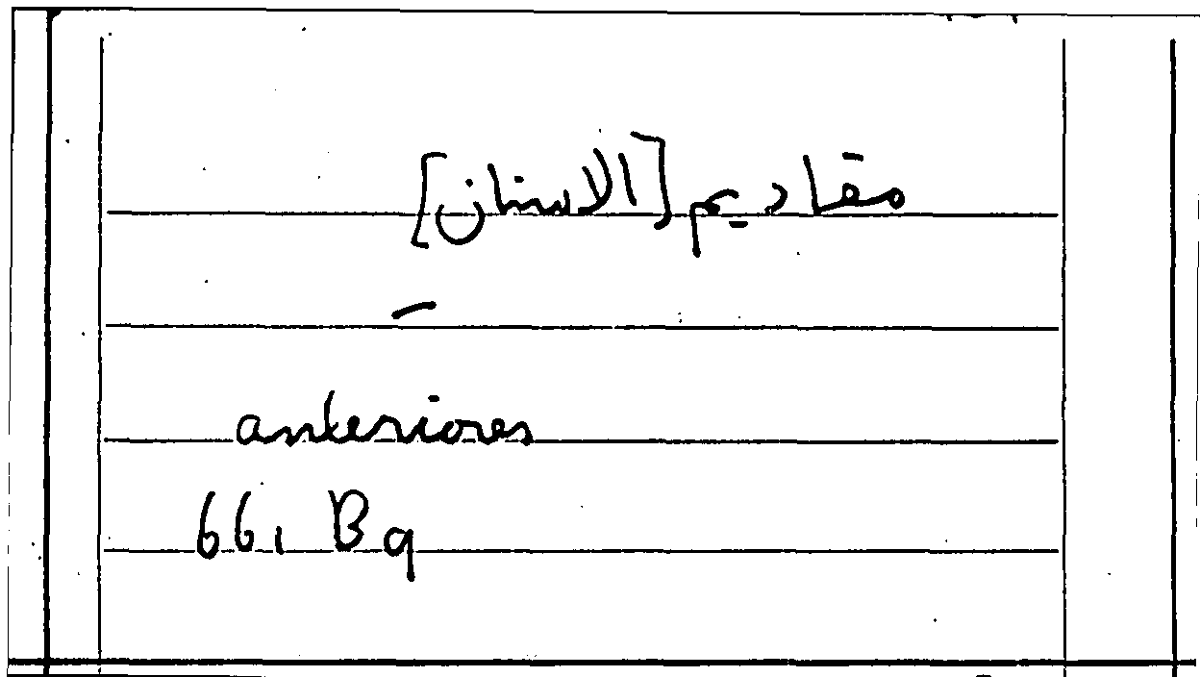 مقاديم [الاسنان]
–
anteriores
66, Bq